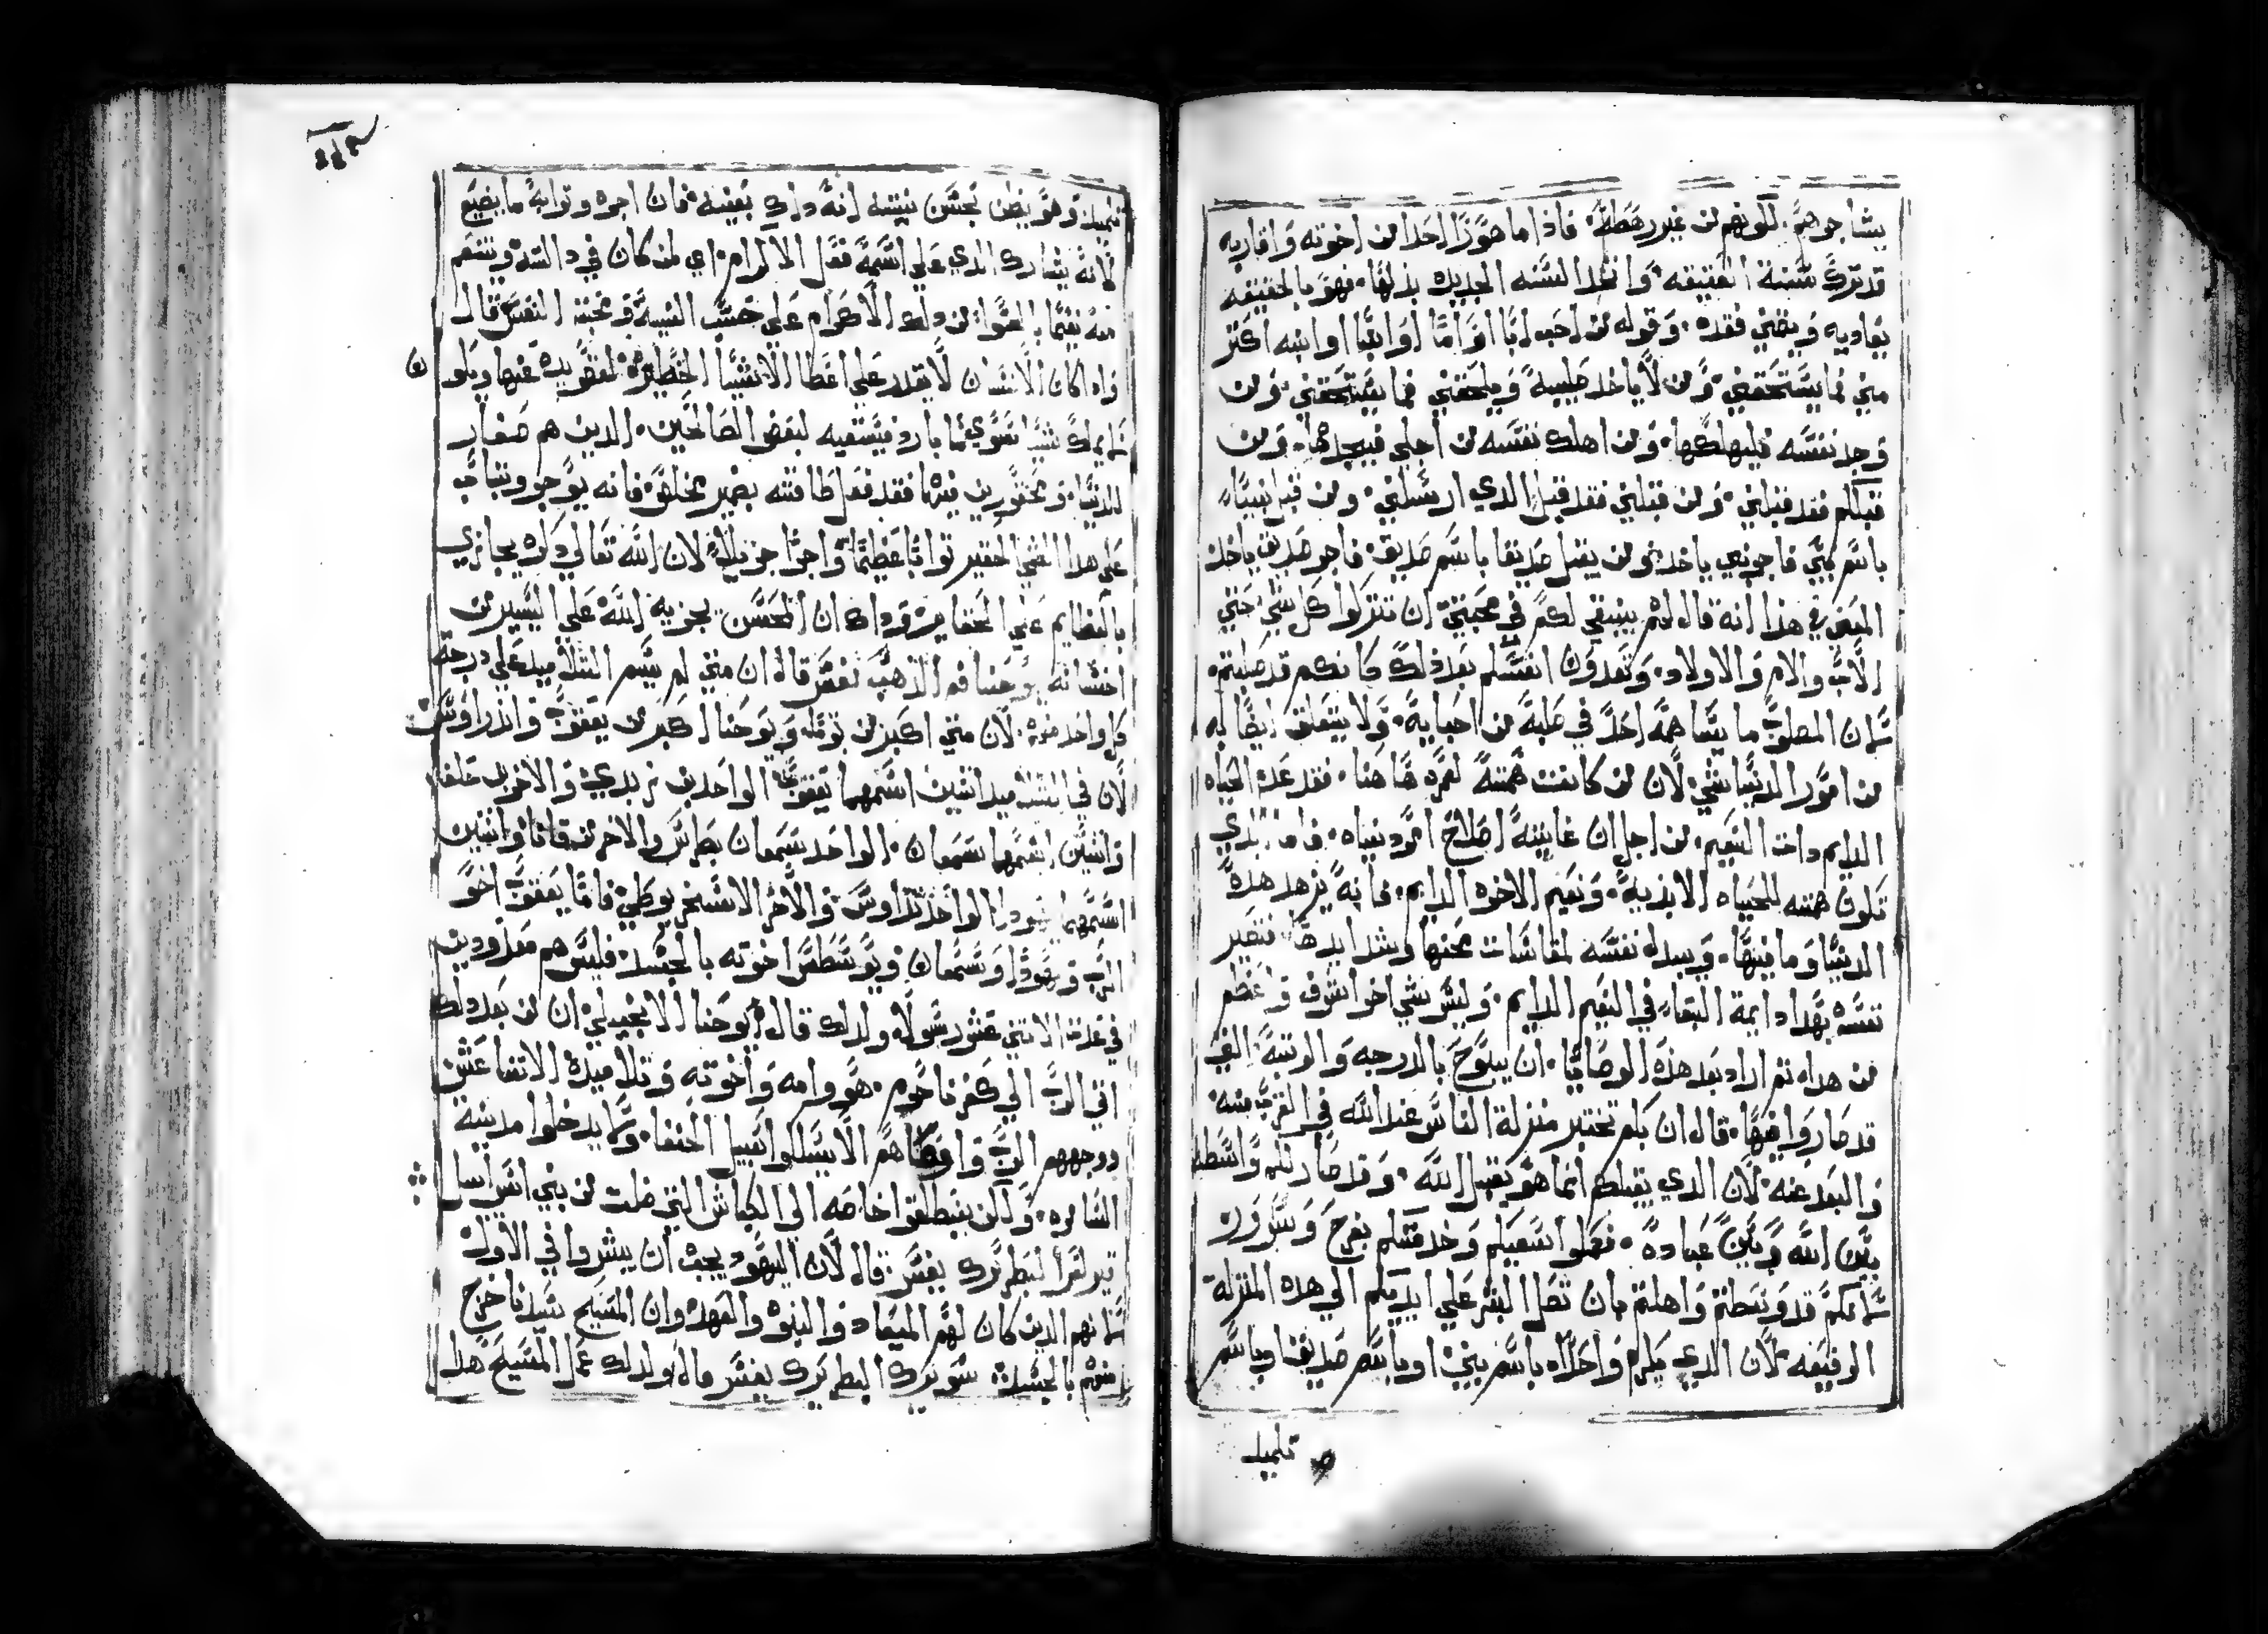 يشاجرهم. لكونهم من غير رهطه. فاذا ما صورا احدا من اخوته واقاربه
قد ترك سنة العتيقه. واتخذ السنه الجديده بذلها. فهو بالحقيقه
يعاديه ويتمني فقده. وقوله من احب ابا او اما او ابنا او ابنه اكتر
مني فما يستحقني. ومن لا ياخد صليبه ويلحقني فما يستحقني. ومن
وجد نفسه فليهلكها. ومن اهلك نفسه من اجلي فيجدها. ومن
قبلكم فقد قبلني. ومن قبلني فقد قبل الدي ارسلني. ومن قبل نبيا
باسم نبي فاجر نبي ياخد. ومن يقبل صديقا باسم صديق. فاجر صديق ياخد
المعني في هذا انه قال لهم ينبغي لكم في محبتي ان تتركوا كل شي حتي
الاب والام والاولاد. وتعدون انفسكم بعد ذلك كانكم قد صلبتم.
كما ان المصلوب ما يتبا همه احد في صلبه من احبايه. ولا يتعلق ايضا له
من امور الدنيا بشي. لان من كانت همته لعمر هاهنا. فقد عدم الحياه
الدايم دات النعيم. من اجل ان غايته اصلاح امر دنياه. واما الذي
تكون همته للحياه الابديه. ونعيم الاخره الدايم. فانه يزهد هذه
الدنيا وما فيها. ويبدل نفسه لمقاسات محنها وشدايدها. فتصير
نفسه بهدا دايمة البقاء في النعيم الدايم. وليس شي اخر اشرف واعظم
من هدا. تم اراد بعد هذه الوصايا. ان يلوح بالدرجه والرتبه التي
قد صاروا فيها. قال ان بكم تختبر منزلة الناس عند الله في القرب منه
والبعد عنه. لان الدي يقبلكم انما هو يقبل الله. وقد صار لكم واسطه
بين الله وبين عباده. فكملوا سعيكم وخدمتكم بفرح وسرور
كما انكم قد وسطتم واهلتم بان تصل البشر علي ايديكم الي هده المنزلة
الرفيعه. لان الدي يكرم واحدا باسم نبي. او باسم صديق او باسم
تلميد
تلميد وهو يظن بحسن نيته انه داك بعينه. فان اجره وتوابه ما يضيع
لانه يشارك الدي علي اسمه فعل الاكرام. اي من كان في دالك ويتنعم
معه نعيما بالسوا. من دلك الاكرام علي حسب النيه ومحبته التفسر قال
وادا كان الانسان لا يقدر علي اعطا الاشيا الخطيره لقصر يده عنها ويكون
لا يملك شيا سوي ما بارد فيسقيه لبعض الصالحين. الدين هم صغار
الدنيا. ومحقورين فيها فقد فعل طاقته بضمير مخلص. فانه يوجر ويتاب
علي هدا الشي الحقير توابا عظيما واجرا جزيله. لان الله تعالي دكره يجازي
بالعظايم علي الحقاير. وداك ان المحسن يجزيه الله علي اليسير من
احسانه يوحنا فم الذهب يفسر قال ان متي لم يسم التلاميد علي درجة
كل واحد منهم. لان متي اكبر من توما. ويوحنا اكبر من يعقوب واندراوس
لان في التلاميد اتنين اسمهما يعقوب الواحد بن زبدي والاخر بن حلفا
واتنين اسمهما سمعان. الواحد سمعان بطرس والاخر من قانا. واتنين
اسمهما يهودا الواحد تداوس. والاخر الاسخريوطي. فاما يعقوب اخو
الرب ويهودا وسمعان ويوسطس اخوته بالجسد. فليس هم معدودين
في عدة الاتني عشر رسولا. ولدلك قال يوحنا الانجيلي ان من بعد دلك
اتي الرب الي كفرناحوم. هو وامه واخوته وتلاميده الاتنا عشر
ووجههم الرب واوصاهم الا يسلكوا سبيل الحنفا. ولا يدخلوا مدينة
السامره. ولكن ينطلقوا خاصه الي الكباش التي ضلت من بني اسراييل
البطريرك يفسر: قال لان اليهود يجب ان يبشروا في الاول
لانهم الدين كان لهم الميعاد والبنوه والعهد. وان المسيح سيدنا خرج
منهم بالجسد: سويرك البطريرك يفسر قال ولدلك عمل المسيح هدا